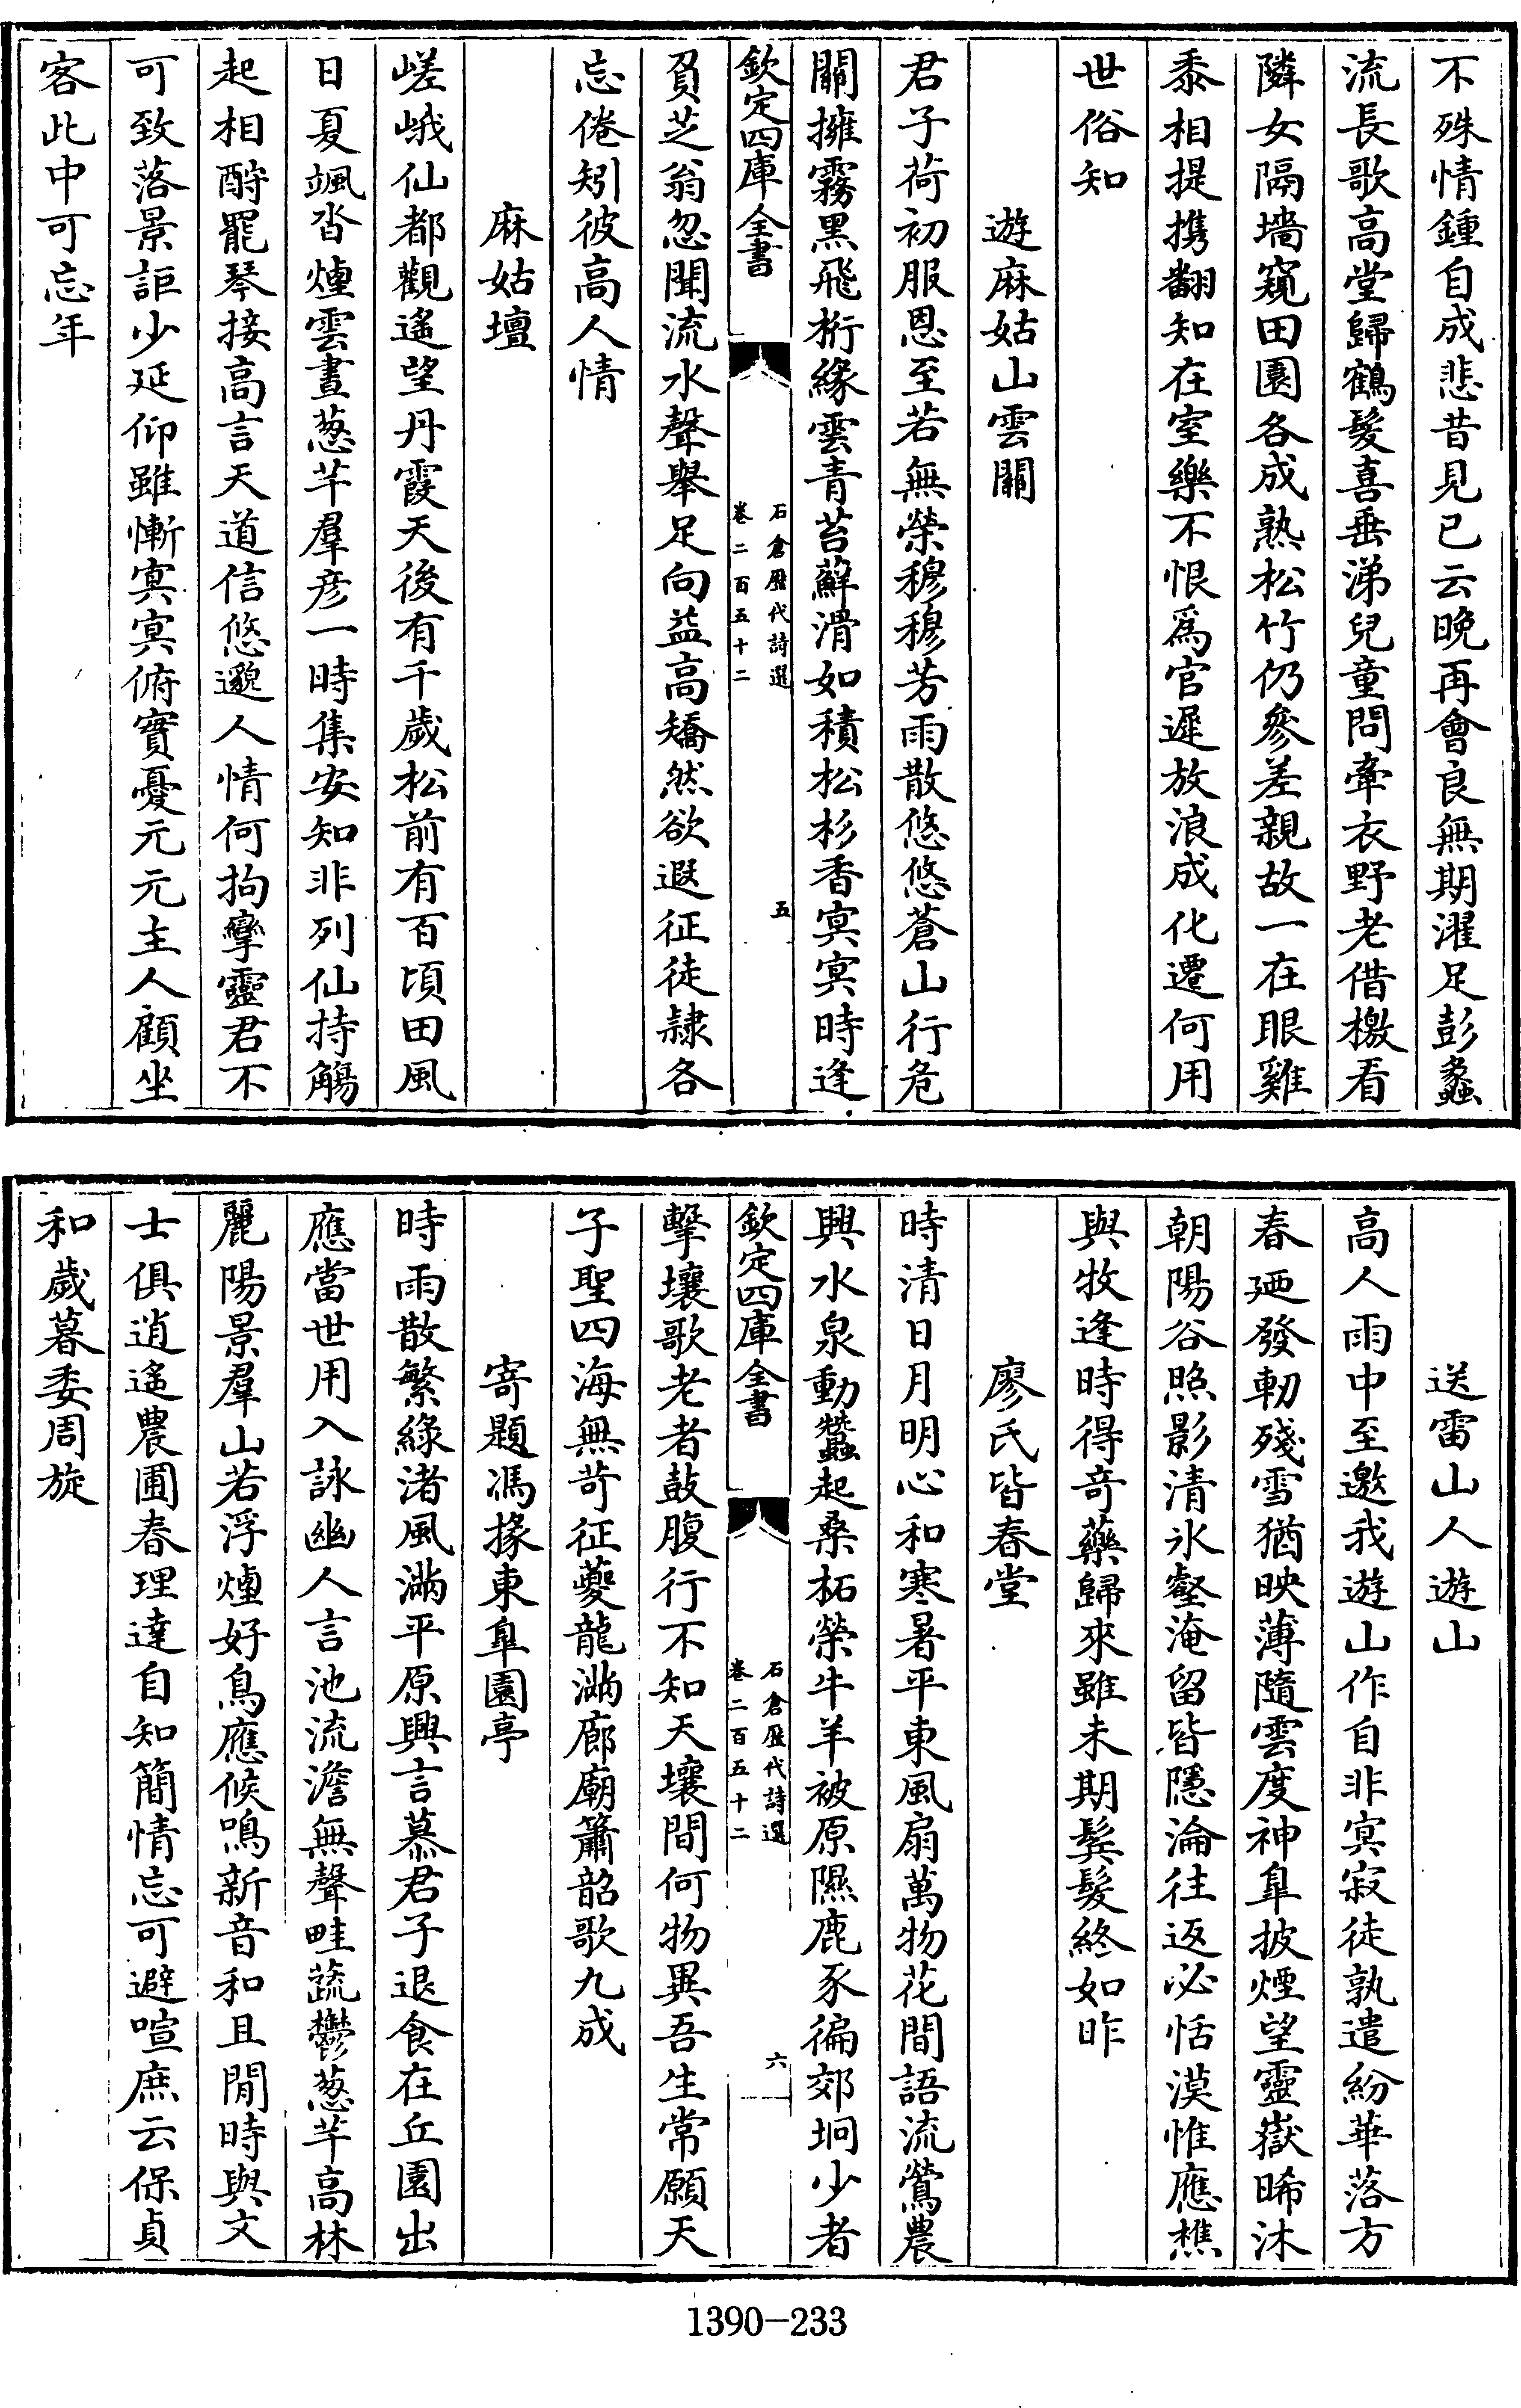 不殊情鍾自成悲昔見已云晚再會良無期濯足彭蠡
流長歌高堂歸鶴髮喜垂涕兒童問牽衣野老借檄看
隣女隔墻窺田園各成熟松竹仍參差親故一在眼雞
黍相提携翻知在室樂不恨爲官遲放浪成化遷何用
世俗知
遊麻姑山雲關
君子荷初服恩至若無榮穆穆芳雨散悠悠蒼山行危
關擁霧黑飛桁緣雲青苔蘚滑如積松杉香冥冥時逢
欽定四庫全書
石倉歷代詩選
卷二百五十二
五
負芝翁忽聞流水聲舉足向益高矯然欲遐征徒隷各
忘倦矧彼高人情
麻姑壇
嵯峨仙都觀遙望丹霞天後有千歲松前有百頃田風
日夏颯沓煙雲晝葱芊羣彦一時集安知非列仙持觴
起相酧罷琴接高言天道信悠邈人情何拘攣靈君不
可致落景詎少延仰雖慚冥冥俯實憂元元主人顧坐
客此中可忘年
送雷山人遊山
高人雨中至邀我遊山作自非冥寂徒孰遣紛華落方
春迺發軔殘雪猶映薄隨雲度神臯披煙望靈嶽晞沐
朝陽谷照影清氷壑淹留皆隱淪往返必恬漠惟應樵
與牧逢時得奇藥歸來雖未期鬓髮終如昨
廖氏皆春堂
時清日月明心和寒暑平東風扇萬物花間語流鶯農
興水泉動蠶起桑柘榮牛羊被原隰鹿豕徧郊坰少者
欽定四庫全書
石倉歷代詩選
卷二百五十二
六
擊壤歌老者鼓腹行不知天壤間何物異吾生常願天
子聖四海無苛征夔龍滿廊廟簫韶歌九成
寄題馮掾東臯園亭
時雨散繁綠渚風滿平原興言慕君子退食在丘園出
應當世用入詠幽人言池流澹無聲畦蔬鬱葱芊高林
麗陽景羣山若浮煙好鳥應候鳴新音和且閒時與文
士俱逍遙農圃春理達自知簡情忘可避喧庶云保貞
和歲暮委周旋
1390-233